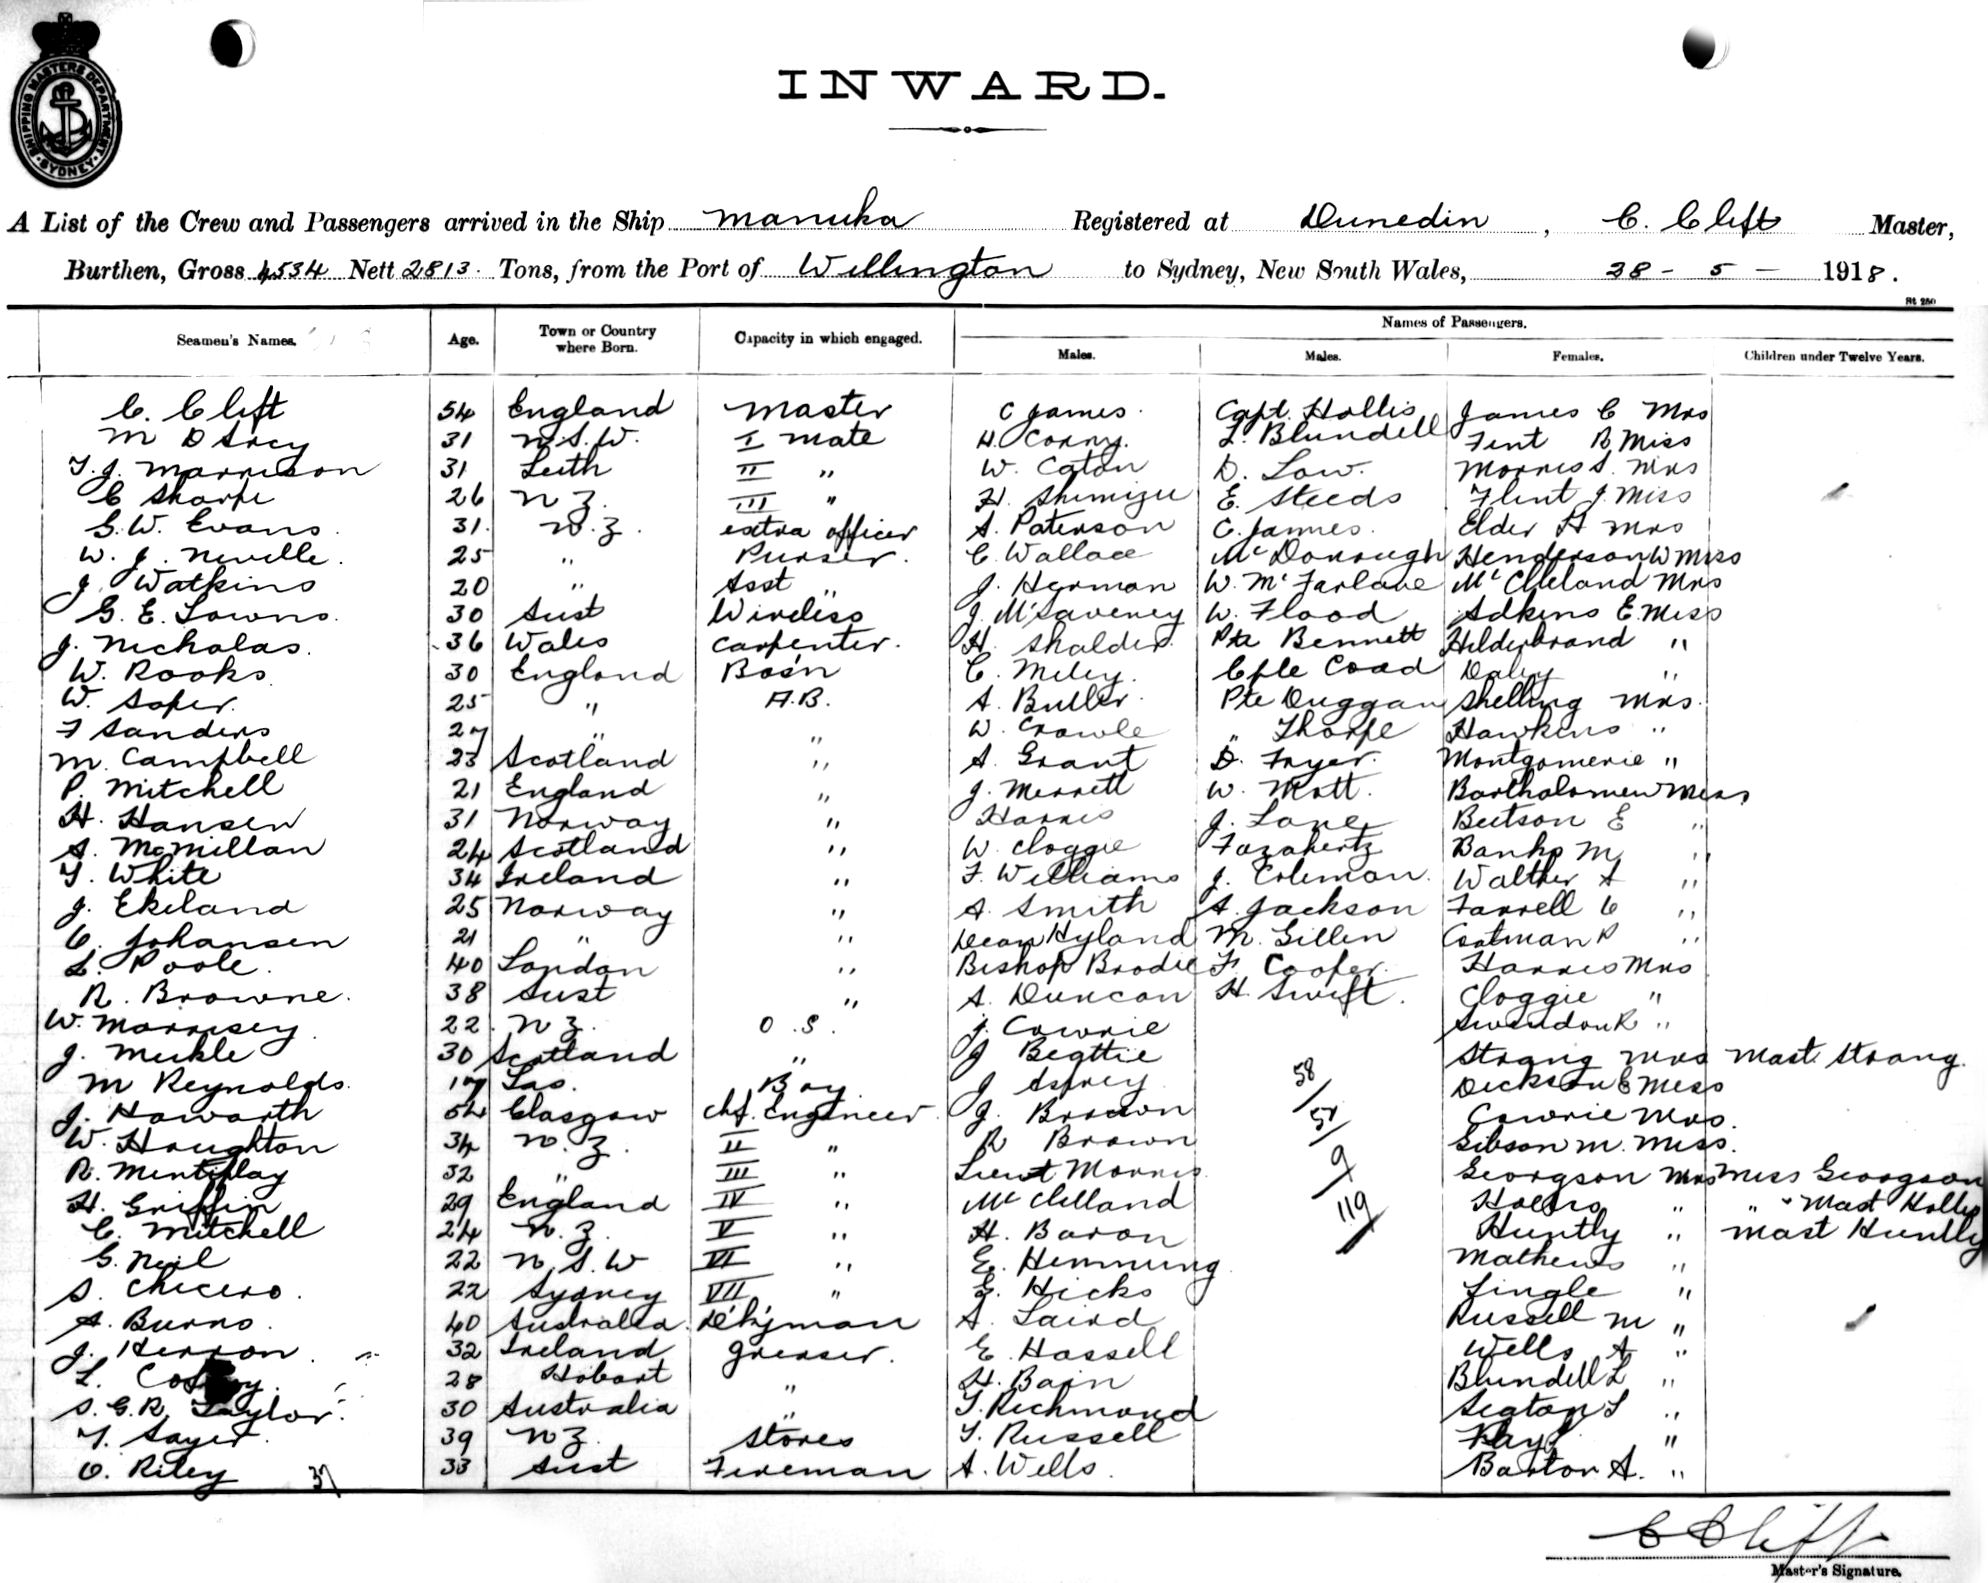 SHIPPING MASTERS DEPARTMENT
SYDNEY
INWARD.
A List of the Crew and Passengers arrived in the Ship Manuka Registered at Dunedin, C. Clift Master,
Burthen, Gross 4534 Nett 2813. Tons, from the Port of Wellington to Sydney, New South Wales, 28 - 5 - 1918.
St 250
Seamen's Names. Age. Town or Country where Born. Capacity in which engaged. Names of Passengers.
Males. Males. Females. Children under Twelve Years.
C. Clift 54 England Master C James. Capt. Hollis James C Mrs
M D Arcy 31 N.S.W. I Mate H. Corry. L. Blundell Fint R Miss
T.J. Marrison 31 Leith II " W. Caton D. Low. Morris S. Mrs
C Sharpe 26 N Z. III " H. Shimizu E. Steeds Flint J Miss
G.W. Evans. 31. N.Z. extra officer A. Paterson C. James. Elder H Mrs
W. J. Neville. 25 " Purser. C Wallace McDonough Henderson W Miss
J. Watkins 20 " Asst " J. Herman W. McFarlane McClleland Mrs
G. E. Lowns. 30 Aust Wireless J. McSaveney W. Flood Adkins E. Miss
J. Nicholas. 36 Wales Carpenter. H. Shalder. Pte Bennett Hilderbrand "
W. Rooks. 30 England Bos'n C. Miley. Cple Coad Daley "
W. Soper. 25 " A.B. A. Butler. Pte Duggan Shelling Mrs.
F Sanders 27 " " W. Crowle " Thorpe Hawkins "
M. Campbell 23 Scotland " A. Grant D. Fryer. Montgomerie "
P. Mitchell 21 England " J. Merrett W. Mott. Bartholomew Miss
H. Hansen 31 Norway " Harris J. Lane Beitson E "
A. McMillan 24 Scotland " W. Cloggie Fazakertz Banks M "
T. White 34 Ireland " F. Williams J. Coleman. Walther A "
J. Ekeland 25 Norway " A. Smith A. Jackson Farrell C "
C. Johansen 21 " " Dean Hyland M. Gillin Coatman P "
L. Poole. 40 London " Bishop Brodie F. Cooper. Harris Mrs
R. Browne. 38 Aust " A. Duncan H. Swift. Cloggie "
W. Morrisey 22. N Z. O.S. J. Cowrie Swindon R "
J. Meikle 30 Scotland " J Beattie Strang Mrs Mast. Strang.
M Reynolds. 17 Tas. Boy. J Asprey 58 Dickson E Miss
J. Howarth 54 Glasgow Chf. Engineer. J. Brown 52 Cowrie Mrs.
W. Houghton 34 N.Z. II " R Brown Gibson M. Miss.
R. Mentiplay 32 " III " Lieut Morris 9 Georgson Mrs Miss Georgson
H. Griffin 29 England IV " Mc Clelland 119 Hollis " " " Mast Hollis
C. Mitchell 24 N.Z. V " H. Baron Huntly " Mast Huntly
G. Neil 22 N.S.W VI " E. Hemming Mathews "
S. Chicero. 22 Sydney VII " E. Hicks Lingle "
A. Burns. 40 Australia. D'k'yman A. Laird Russell M "
J. Herron 32 Ireland Greaser. E. Hassell Wells A "
L. 28 Hobart " H. Bain Blundell L "
S.G.R. Taylor. 30 Australia " T. Richmond Seaton S "
T. Sayer. 39 N Z. Stores T. Russell Hay "
O. Riley 37 33 Aust Fireman A. Wells. Barton A. "
C Clift
Master's Signature.